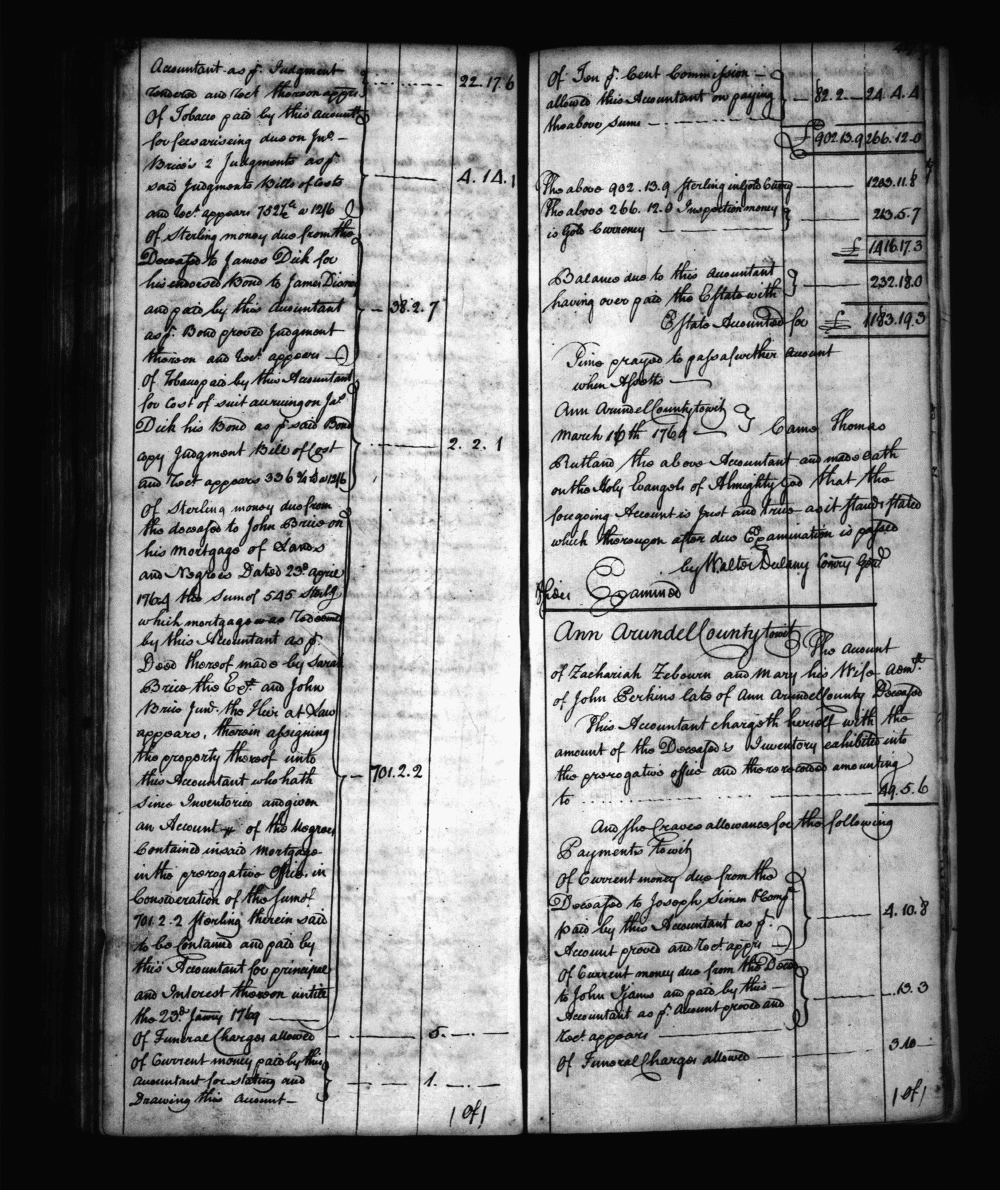 Accountant as pr. Judgment
rendered and rect. thereon apprs. 22.17.6
Of Tobacco paid by this Account
for fees ariseing due on Jno.
Brice's 2 Judgments as pr.
said Judgments Bills of Costs 4.14.1
and rect. appears 752 a 12/6
Of Sterling money due from the
Deceased to James Dick for
his endorsed Bond to James Dison
and paid by this Accountant 38.2.7
as pr. Bond proved Judgment
thereon and rect. appears
Of Tobacco paid by this Accountant
for Cost of suit accruing on Jas.
Dick his Bond as pr. said Bond
apy Judgment Bill of Cost 2.2.1
and rect. appears 336 a 12/6
Of Sterling money due from
the deceased to John Brice on
his Mortgage of Lands
and Negroes Dated 23d. April
1764 the Sum of 545 Sterlg.
which mortgage was Redeemed
by this Accountant as pr.
Deed thereof made by Sarah
Brice the Ex. and John
Brice Junr. the Heir at Law
appears, therein assigning
the property thereof unto
this Accountant who hath 701.2.2
since Inventoried and given
an Account of the Negroes
Contained in said Mortgage
in the prerogative Office, in
Consideration of the sum of
701.2.2 Sterling therein said
to be Contained and paid by
this Accountant for principal
and Interest thereon untill
the 23d. Janry 1769
Of Funeral Charges allowed 5.
Of Current money paid by this
Accountant for stating and 1.
Drawing this Account
Of Ten pr. Cent Commission
allowed this Accountant on paying 82.2 24.4.4
the above sums
£ 902.13.9 266.12.0
The above 902.13.9 sterling in Gold Curry 1203.11.8
The above 266.12.0 Inspection money 213.5.7
is Gold Currency
£ 1416.17.3
Balance due to this Accountant
having over paid the Estate with 232.18.0
Estate Accounted for £ 1183.19.3
Time prayed to pass a further Account
when Assetts
Ann Arundell County towit
March 16th 1769 Came Thomas
Rutland the above Accountant and made oath
on the Holy Evangels of Almighty God that the
foregoing Account is Just and true as it stands stated
which thereupon after due Examination is passed
by Walter Dulany Comry Genl.
Examined
Ann Arundell County towit The Account
of Zachariah Zebourn and Mary his Wife Admx.
of John Perkins late of Ann Arundell County Deceased
This Accountant chargeth herself with the
amount of the Deceased's Inventory exhibited into
the prerogative office and there recorded amounting
to 49.5.6
And she Craves allowance for the following
Payments towit
Of Current money due from the
Deceased to Joseph Simon & Comp
paid by this Accountant as pr. 4.10.8
Account proved and rect. apprs
Of Current money due from the Deced
to John Ijams and paid by this .13.3
Accountant as pr. Account proved and
rect. appears
Of Funeral Charges allowed 3.10